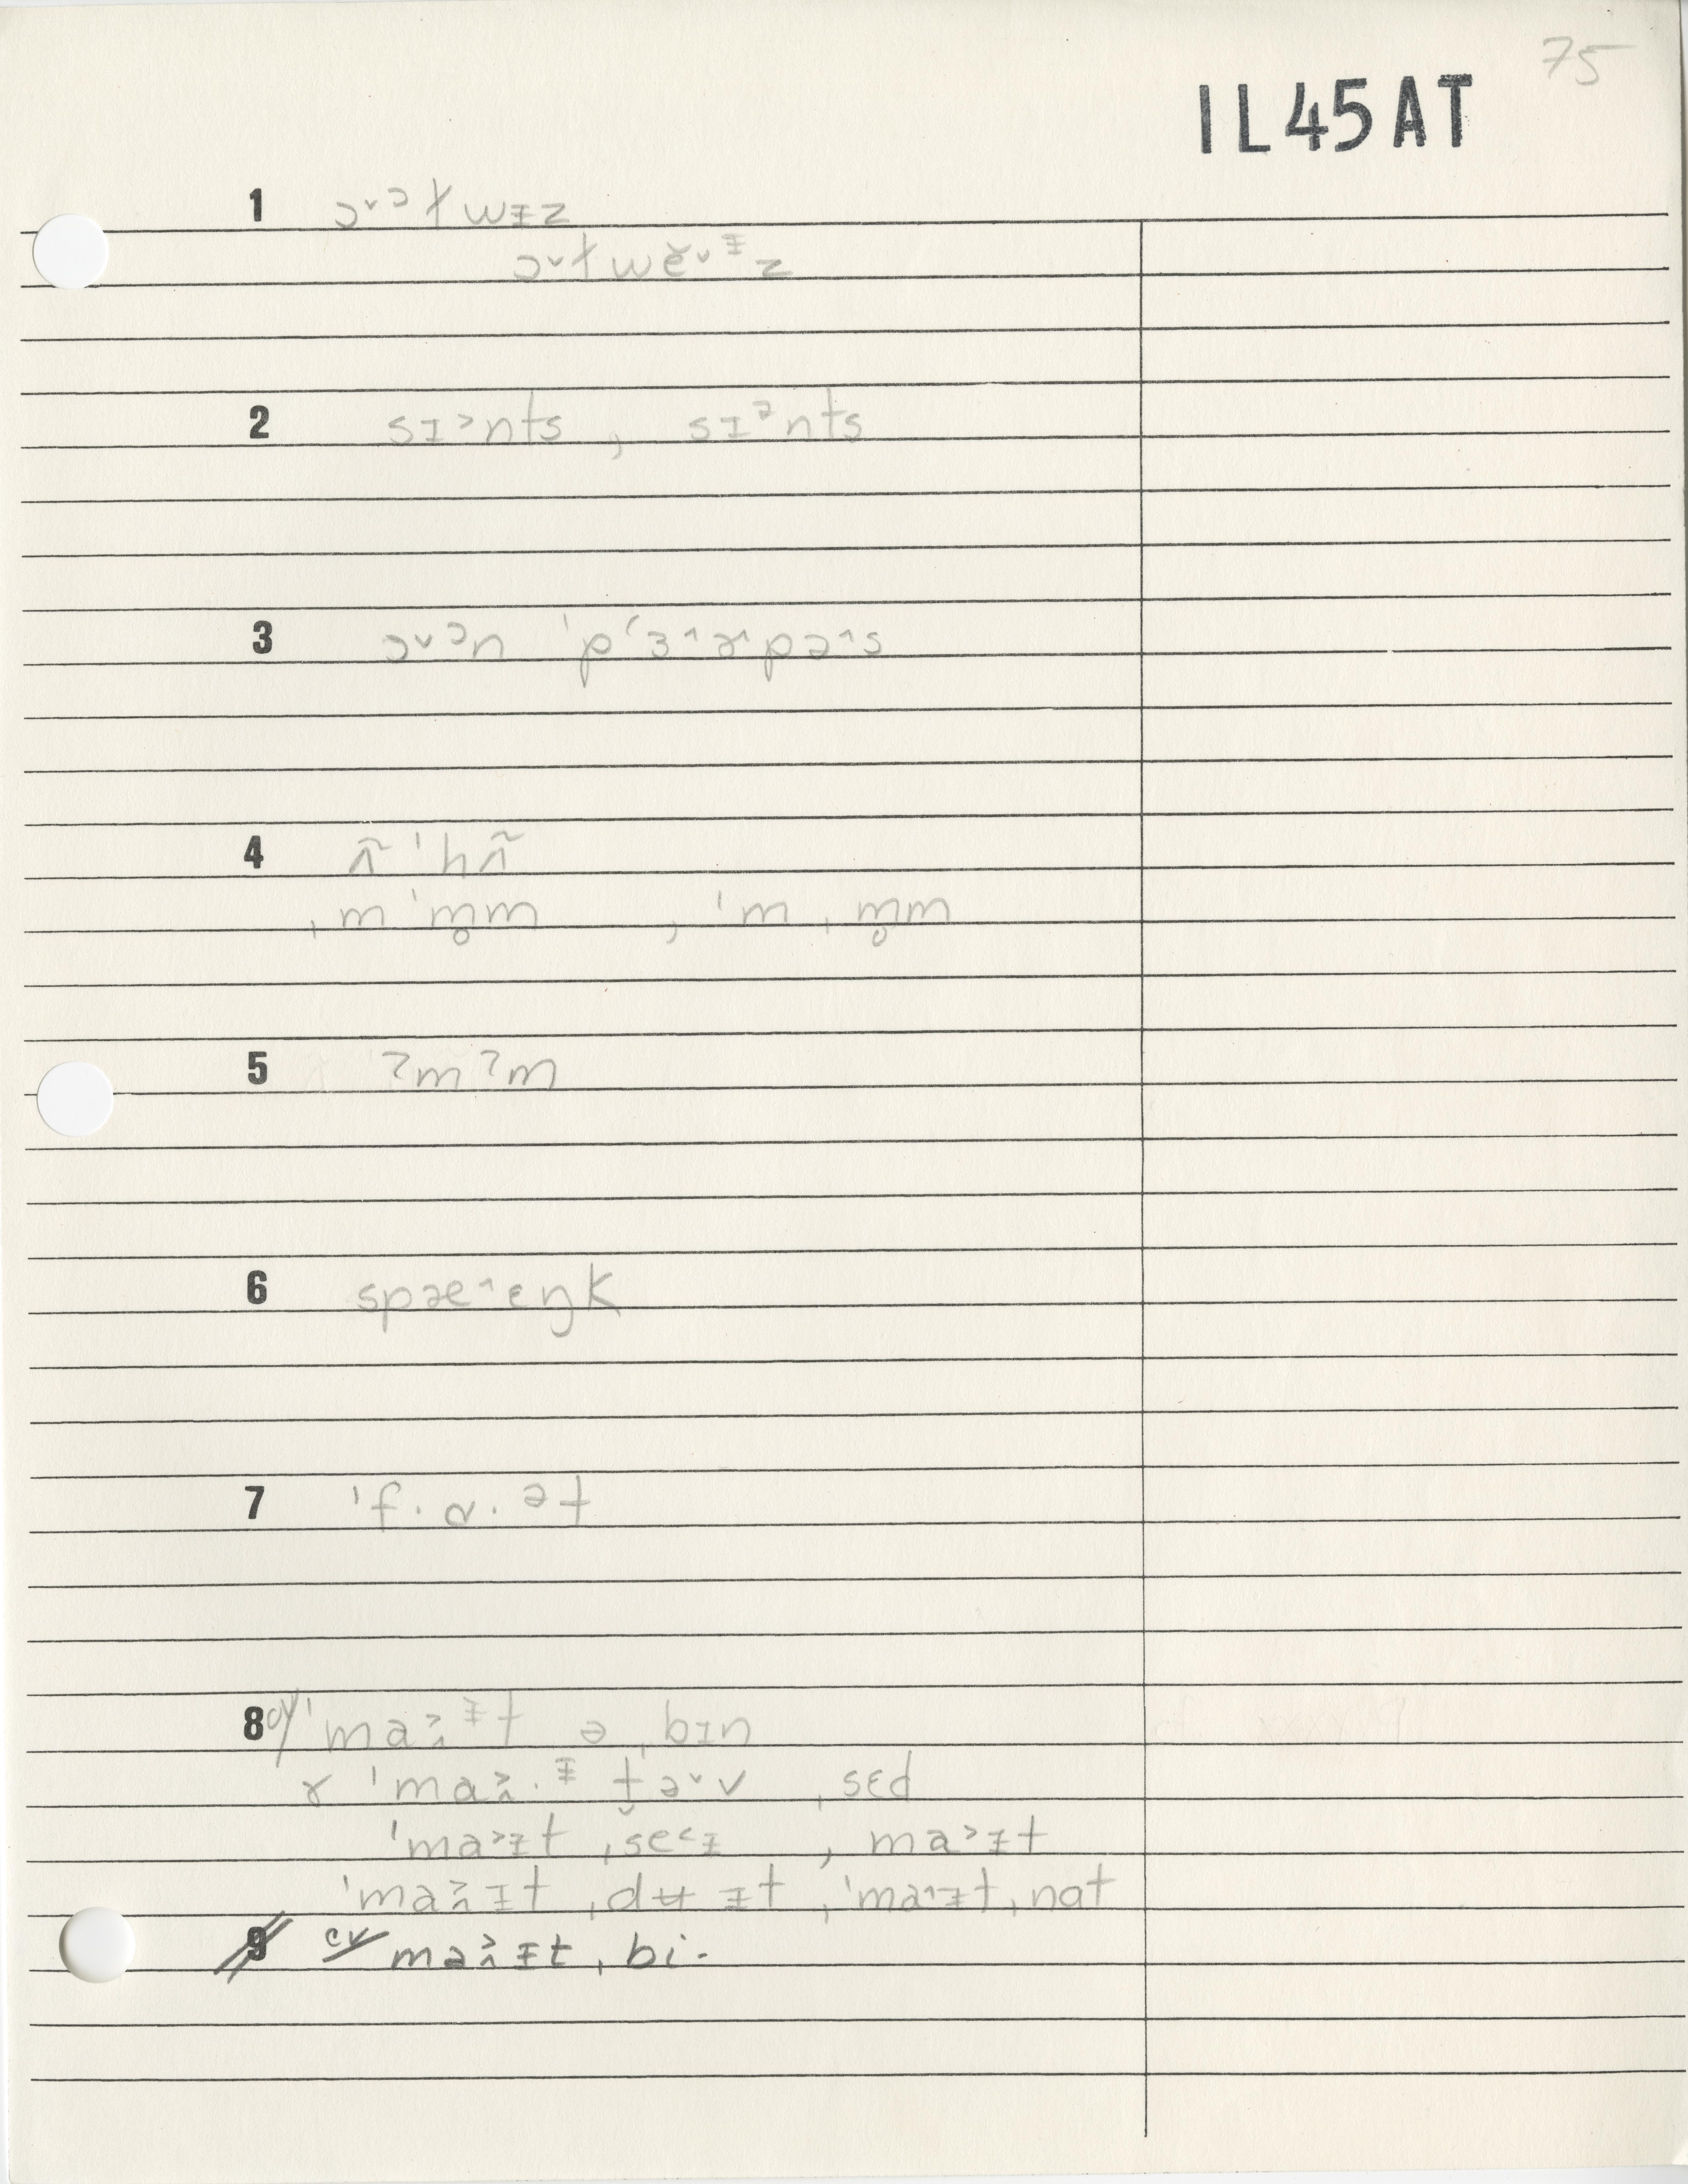 75
1L45AT
1 ɔ˅ᵓɫwɪz
ɔ˅ɫwĕ˅ᶧz
2 sɪ˃nts , sɪᵊnts
3 ɔ˅ᵓn ˈp‘ɜ˄ɚ˄pə˄s
4 ʌ̃ ˈhʌ̃
ˌm ˈm̥m , ˈm ˌm̥m
5 ʔmʔm
6 spæ˄ɛŋk
7 ˈf·ɑ·ᵊt
8 cv/ ˈma˃˄ᵻt ə ˌbɪn
ɤ ˈma˃˄·ᵻ t̬ə˅v ˌsɛd
ˈma˃ᵻt ˌse˂ᵻ , ma˃ᵻt
ˈma˃˄ᵻt ˌdʉᵻt , ˈma˄ᵻt ˌnat
9 cv/ ma˃˄ᵻt ˌbi·